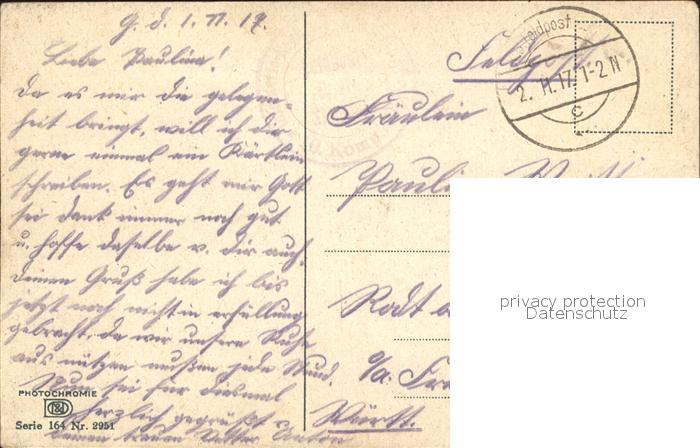 G. d. 1. 11. 17.
Liebe Paulina!
Da es mir die gelegen-
heit bringt, will ich dir
gerne einmal ein Kärtlein
schreiben. Es geht mir Gott
sei dank immer noch gut
u. hoffe daselbe v. dir auch.
Deinen Gruß habe ich bis
jetzt noch nicht in erfüllung
gebracht, da wir unsere Ruhe
aus nützen müßen jede Stund.
Nun sei für diesmal
herzlich gegrüßt v.
deinem treuen Vetter Anton
PHOTOCHROMIE
Serie 164 Nr. 2951
Feldpost
Feldpost
2. 11. 17. 1-2 N
c
Fräulein
Rodt
Württ.
privacy protection
Datenschutz